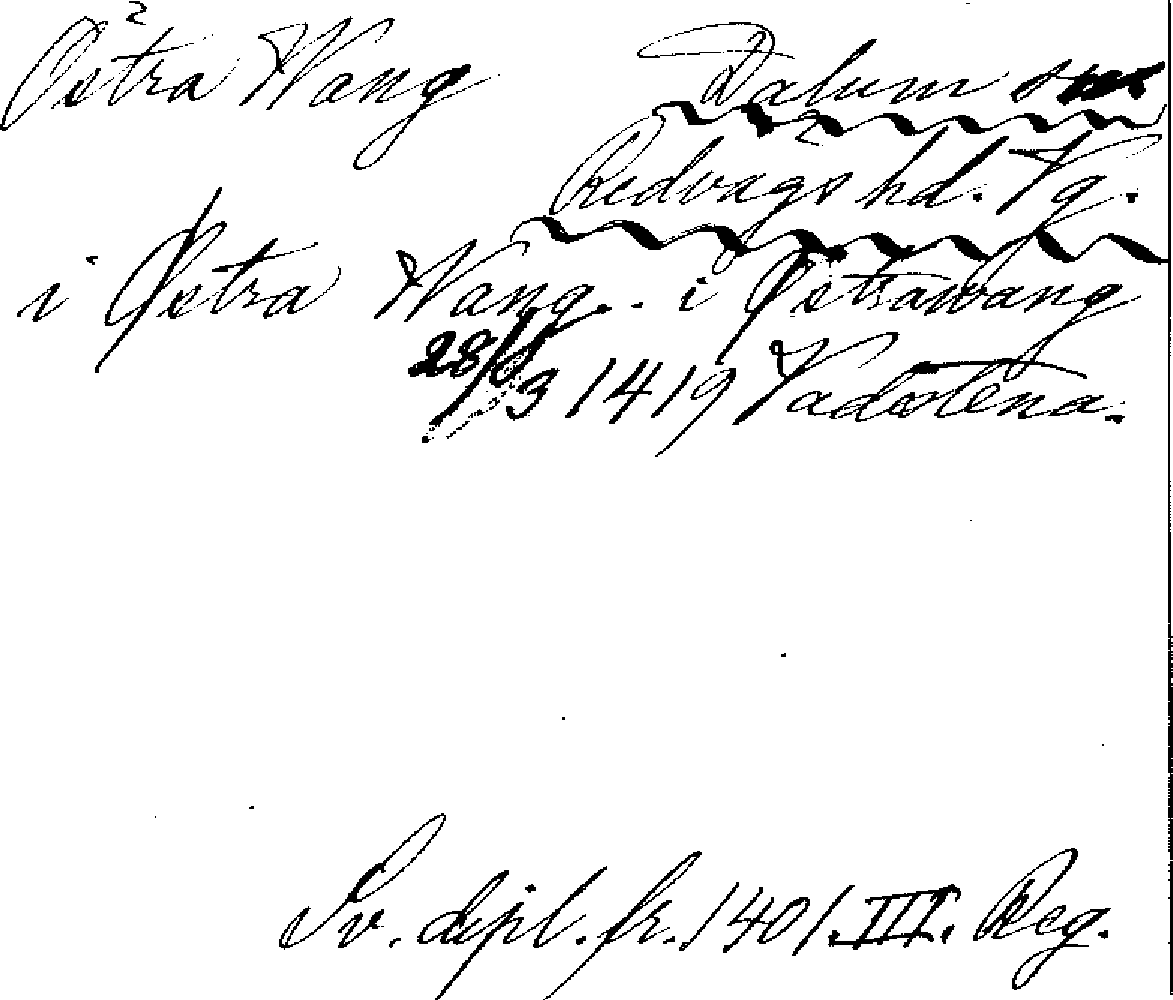 Östra Wang Dalum sn
Redvägs hd. Vg.
i Østra Wang.. i Østrawang
28/3 1419 Vadstena.
Sv. dipl. fr. 1401. III. Reg.